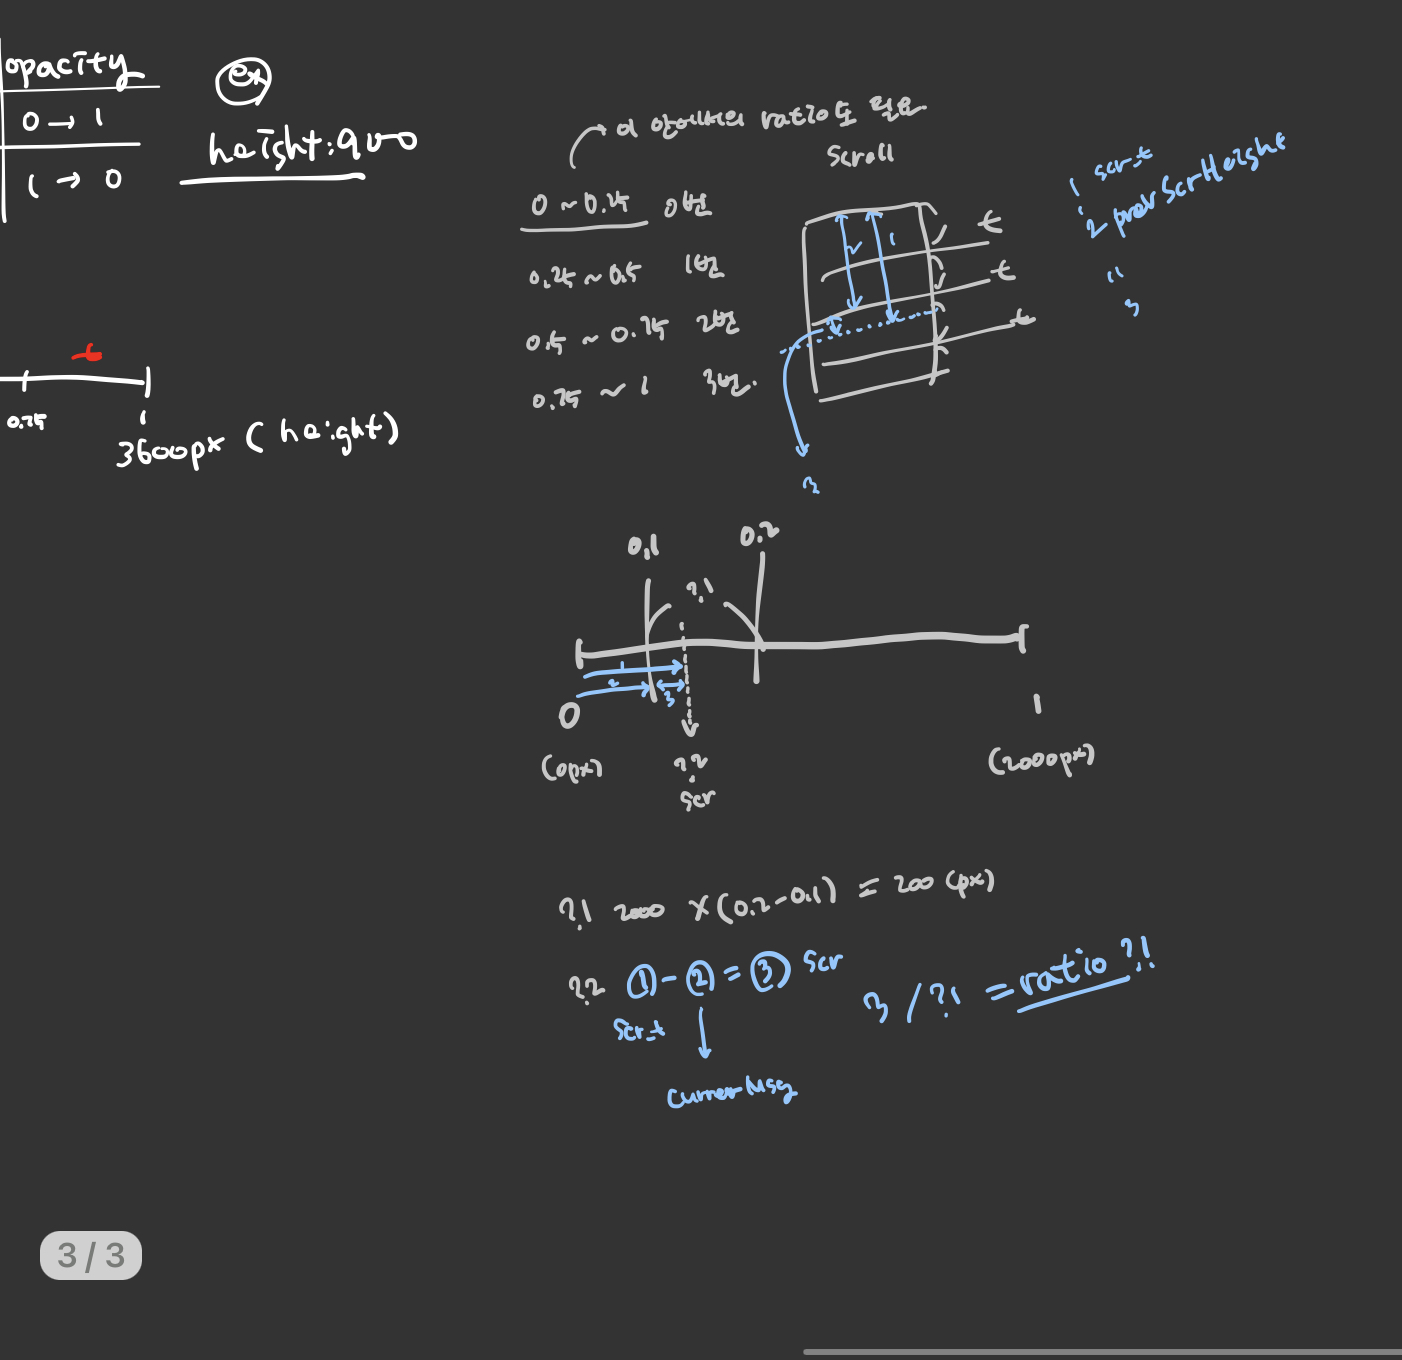 opacity
0 → 1
1 → 0
ex
height: 900
t
0.75
1
3600px (height)
이 안에서의 ratio도 필요
Scroll
0 ~ 0.25 0번
0.25 ~ 0.5 1번
0.5 ~ 0.75 2번
0.75 ~ 1 3번.
2
1
t
t
t
3
1 scr_t
2 prevScrHeight
=
3
0.1
0.2
?1
1
2
3
0
(0px)
?2
scr
1
(2000px)
?1 2000 x (0.2-0.1) = 200 (px)
?2 ① - ② = ③ scr
scr_t
3 / ?1 = ratio ?!